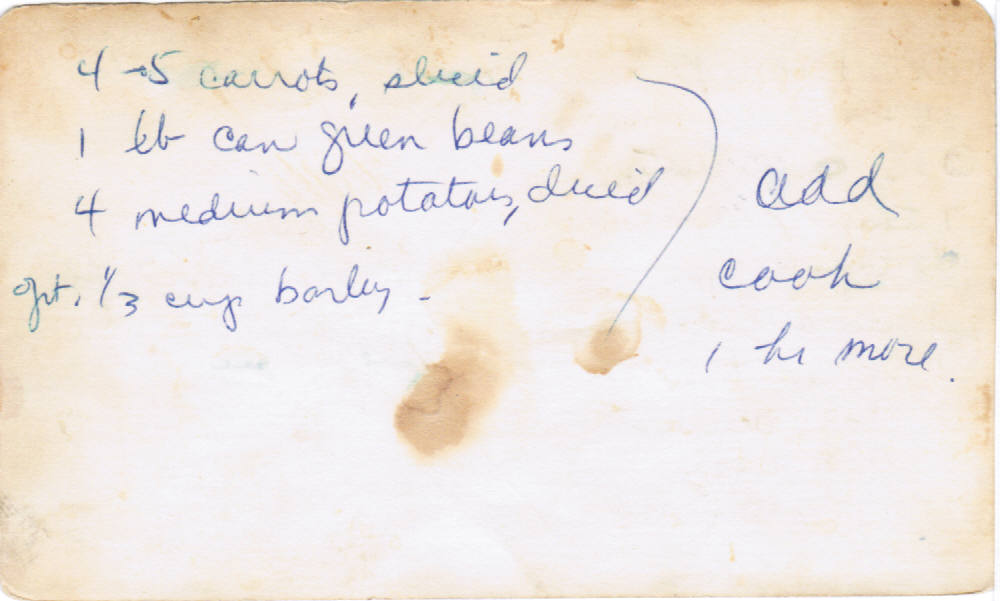 4-5 carrots, sliced
1 lb can green beans
4 medium potatoes, diced
opt. 1/3 cup barley -
add
cook
1 hr more.